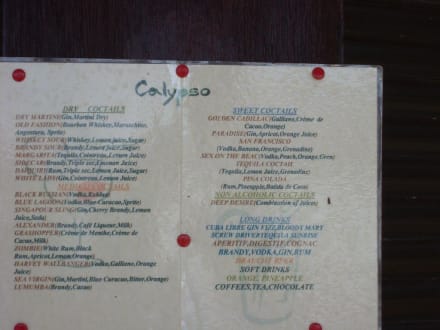 Calypso
DRY COCTAILS
DRY MARTINI(Gin,Martini Dry)
OLD FASHION(Bourbon Whiskey,Maraschino,
Angostura, Sprite)
WHISKEY SOUR(Whiskey,Lemon Juice,Sugar)
BRANDY SOUR(Brandy,Lemon Juice,Sugar)
MARGARITA(Tequila,Cointreau,Lemon Juice)
SIDECAR(Brandy,Triple sec,Lemon Juice)
DAIQUIRI(Rum,Triple sec,Lemon Juice,Sugar)
WHITE LADY(Gin,Cointreau,Lemon Juice)
MEDIUM COCTAILS
BLACK RUSSIAN(Vodka,Kahlua)
BLUE LAGOON(Vodka,Blue Curacao,Sprite)
SINGAPOUR SLING(Gin,Cherry Brandy,Lemon
Juice,Soda)
ALEXANDER(Brandy,Café Liqueur,Milk)
GRASSHOPPER(Crème de Menthe,Crème de
Cacao,Milk)
ZOMBIE(White Rum,Black
Rum,Apricot,Lemon,Orange)
HARVEY WALLBANGER(Vodka,Galliano,Orange
Juice)
SEA VIRGIN(Gin,Martini,Blue Curacao,Bitter,Orange)
LUMUMBA(Brandy,Cacao)
SWEET COCTAILS
GOLDEN CADILLAC(Galliano,Crème de
Cacao,Orange)
PARADISE(Gin,Apricot,Orange Juice)
SAN FRANCISCO
(Vodka,Banana,Orange,Grenadine)
SEX ON THE BEACH(Vodka,Peach,Orange,Gren)
TEQUILA COCTAIL
(Tequila,Lemon Juice,Grenadine)
PINA COLADA
(Rum,Pineapple,Batida de Coco)
NON ALCOHOLIC COCTAILS
DEEP DESIRE(Combination of Juices)
LONG DRINKS
CUBA LIBRE GIN FIZZ,BLOODY MARY
SCREW DRIVER TEQUILA SUNRISE
APERITIF,DIGESTIF,COGNAC
BRANDY,VODKA,GIN,RUM
DRAUGHT BEER
SOFT DRINKS
ORANGE, PINEAPPLE
COFFEES,TEA,CHOCOLATE